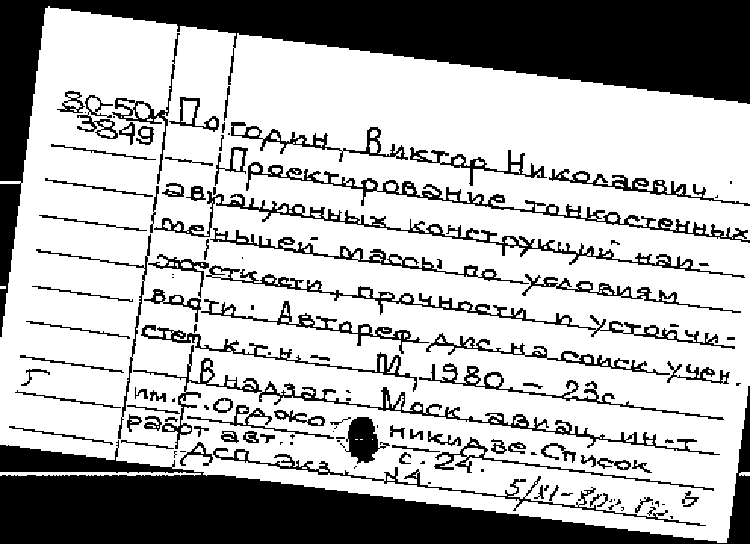 80-50к
3849
Погодин, Виктор Николаевич.
Проектирование тонкостенных
авиационных конструкций наи-
меньшей массы по условиям
жесткости, прочности и устойчи-
вости: Автореф. дис. на соиск. учен.
степ. к.т.н. – М., 1980. – 23с.
В надзаг.: Моск. авиац. ин-т
им. С. Орджоникидзе. Список
работ авт.: с. 24.
Дсп. экз. №4.
5/XI-80г.
Г